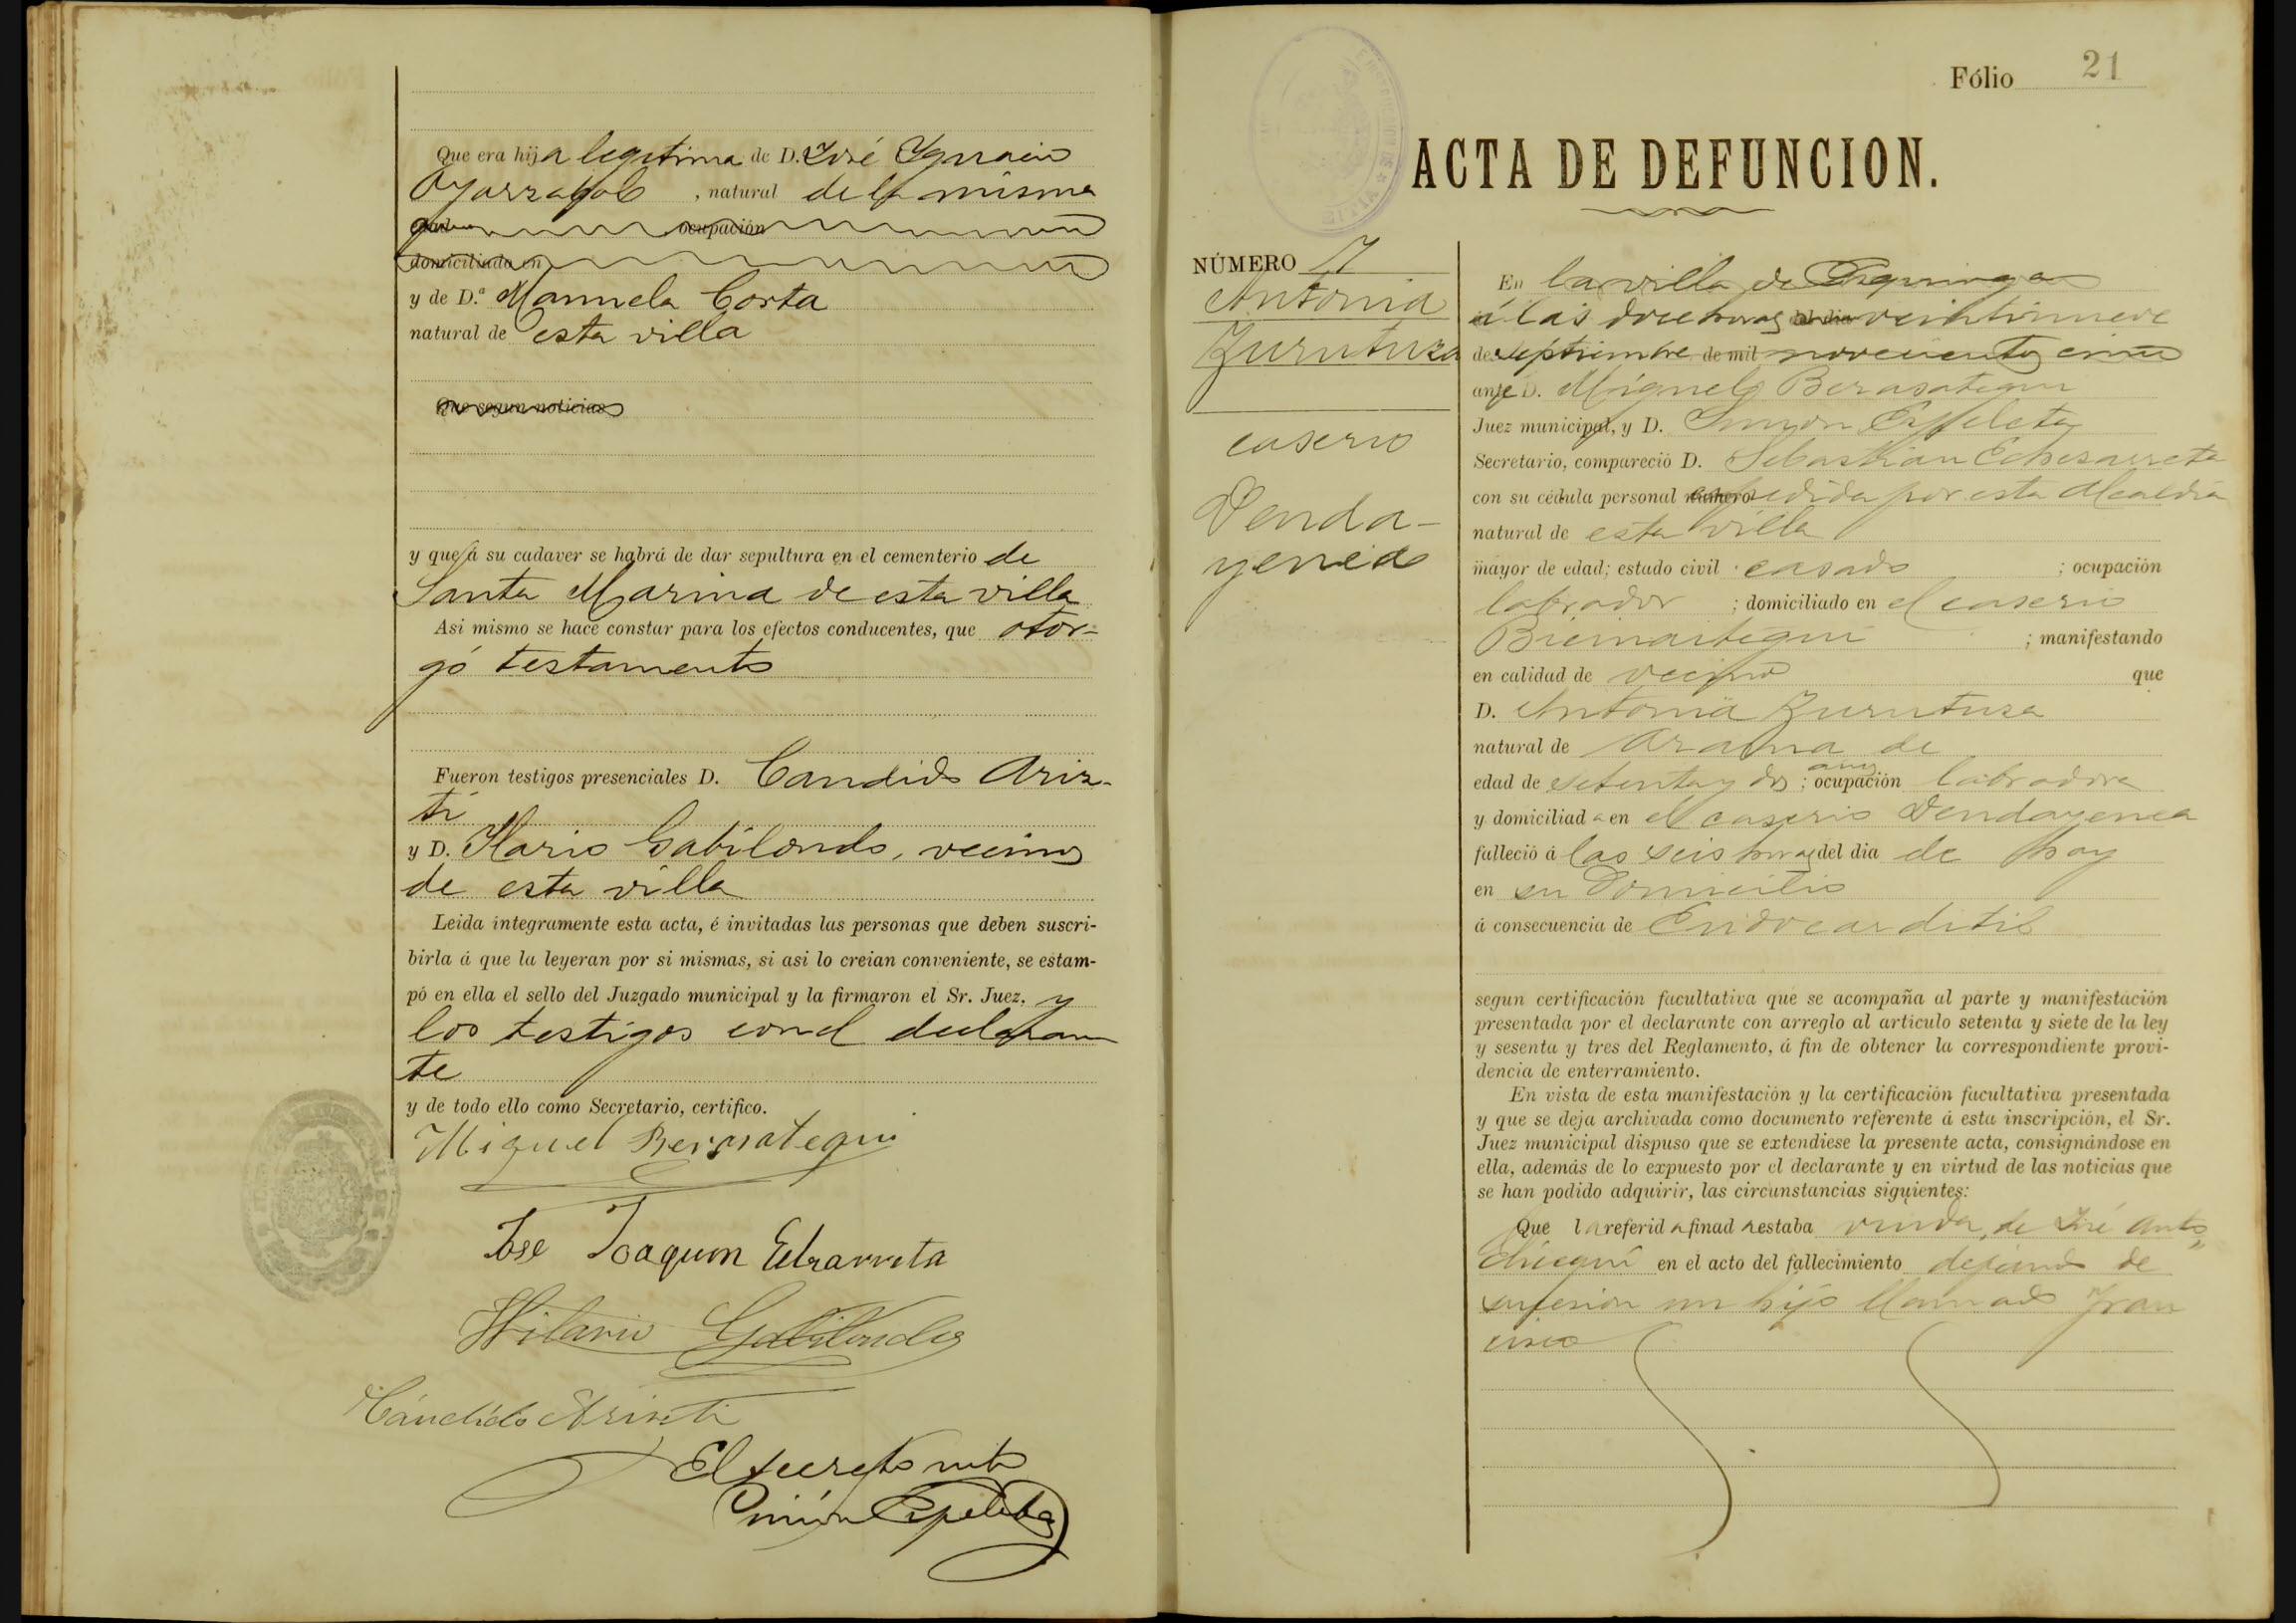 Que era hija legitima de D. José Ygnacio
Oyarzabal, natural de la misma
ocupación
domiciliado en
y de D.ª Manuela Corta
natural de esta villa
Que segun noticias
y que á su cadaver se habrá de dar sepultura en el cementerio de
Santa Marina de esta villa
Asi mismo se hace constar para los efectos conducentes, que otor-
gó testamento
Fueron testigos presenciales D. Candido Ariz-
ti
y D. Ylario Gabilondo, vecinos
de esta villa
Leida íntegramente esta acta, é invitadas las personas que deben suscri-
birla á que la leyeran por si mismas, si asi lo creian conveniente, se estam-
pó en ella el sello del Juzgado municipal y la firmaron el Sr. Juez, y
los testigos con el declaran
te
y de todo ello como Secretario, certifico.
Miguel Berasategui
José Joaquin Echarreta
Hilario Gabilondo
Cándido Arizti
El secretario
Simón Espeleta
Fólio 21
ACTA DE DEFUNCION.
NÚMERO 17
Antonia
Zurutuza
caserio
Venda-
yenea
En la villa de Ezquioga
á las doce horas del dia veintinueve
de septiembre de mil novecientos cinco
ante D. Miguel Berasategui
Juez municipal, y D. Simón Espeleta
Secretario, compareció D. Sebastian Echezarreta
con su cédula personal número expedida por esta Alcaldia
natural de esta villa
mayor de edad; estado civil casado ; ocupación
labrador ; domiciliado en el caserio
; manifestando
en calidad de vecino que
D. Antonia Zurutuza
natural de Arama de
edad de setenta y dos años ; ocupación labradora
y domiciliada en el caserio Vendayenea
falleció á las seis horas del dia de hoy
en su domicilio
á consecuencia de Endocarditis
segun certificación facultativa que se acompaña al parte y manifestación
presentada por el declarante con arreglo al articulo setenta y siete de la ley
y sesenta y tres del Reglamento, á fin de obtener la correspondiente provi-
dencia de enterramiento.
En vista de esta manifestación y la certificación facultativa presentada
y que se deja archivada como documento referente á esta inscripción, el Sr.
Juez municipal dispuso que se extendiese la presente acta, consignándose en
ella, además de lo expuesto por el declarante y en virtud de las noticias que
se han podido adquirir, las circunstancias siguientes:
Que la referida finada estaba viuda de José Antº
en el acto del fallecimiento dejando de
sucesion un hijo llamado Fran
cisco